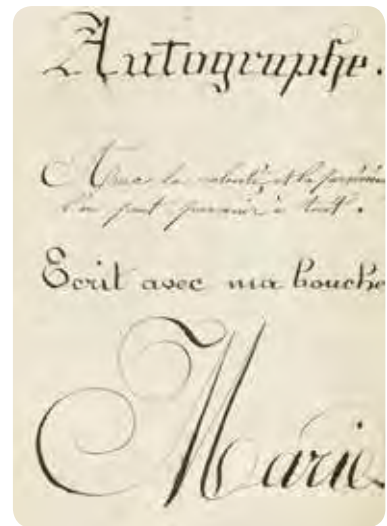 Autographe.
Avec la volonté, et la
l'on peut parvenir à tout.
Ecrit avec ma bouche
Marie